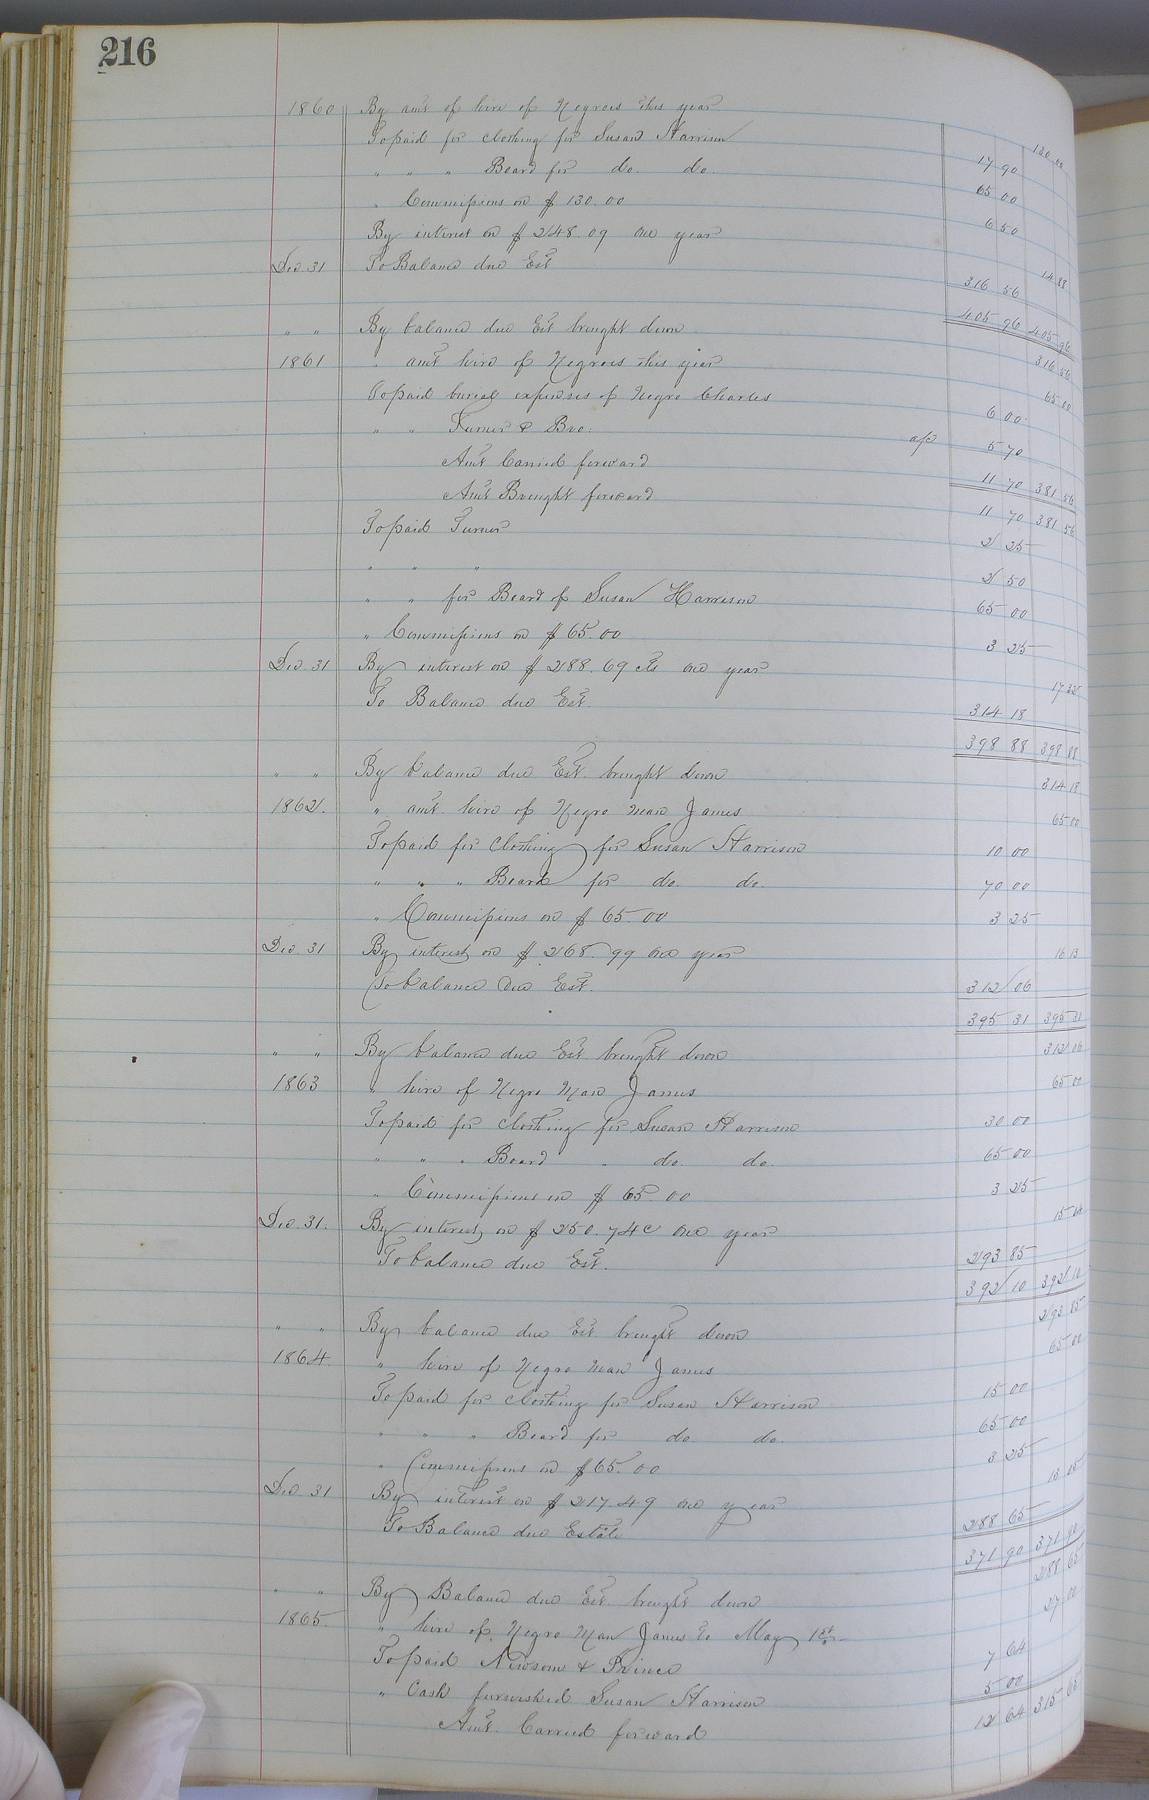 216
1860 By amt of hire of Negroes this year 130 00
To paid for clothing for Susan Harrison 17 90
" " " Board for do. do. 65 00
" Commissions on $130.00 6 50
By interest on $248.09 one year 14 88
Dec. 31 To Balance due Est 316 56
405 96 405 96
" " By balance due Est brought down 316 56
1861 " amt hire of Negroes this year 65 00
To paid burial expenses of Negro Charles 6 00
" " Turner & Bro. a/c 5 70
Amt Carried forward 11 70 381 56
Amt Brought forward 11 70 381 56
To paid Turner 2 25
" " " 2 50
" " for Board of Susan Harrison 65 00
" Commissions on $65.00 3 25
Dec. 31 By interest on $288.69 cts one year 17 32
To Balance due Est. 314 18
398 88 398 88
" " By balance due Est. brought down 314 18
1862. " amt. hire of Negro man James 65 00
To paid for clothing for Susan Harrison 10 00
" " " Board for do. do. 70 00
" Commissions on $65.00 3 25
Dec. 31 By interest on $268.99 one year 16 13
To balance due Est. 312 06
395 31 395 31
" " By balance due Est brought down 312 06
1863 " hire of Negro Man James 65 00
To paid for clothing for Susan Harrison 30 00
" " " Board " do. do. 65 00
" Commissions on $65.00 3 25
Dec. 31. By interest on $250.74c one year 15 04
To balance due Est. 293 85
392 10 392 10
" " By balance due Est brought down 293 85
1864. " hire of Negro man James 65 00
To paid for clothing for Susan Harrison 15 00
" " " Board for do do. 65 00
" Commissions on $65.00 3 25
Dec. 31 By interest on $217.49 one year 13 05
To Balance due Estate 288 65
371 90 371 90
" " By Balance due Est. brought down 288 65
1865. " hire of Negro Man James to May 1st 27 00
To paid Newsom & Prince 7 64
" Cash furnished Susan Harrison 5 00
Amt. Carried forward 12 64 315 65